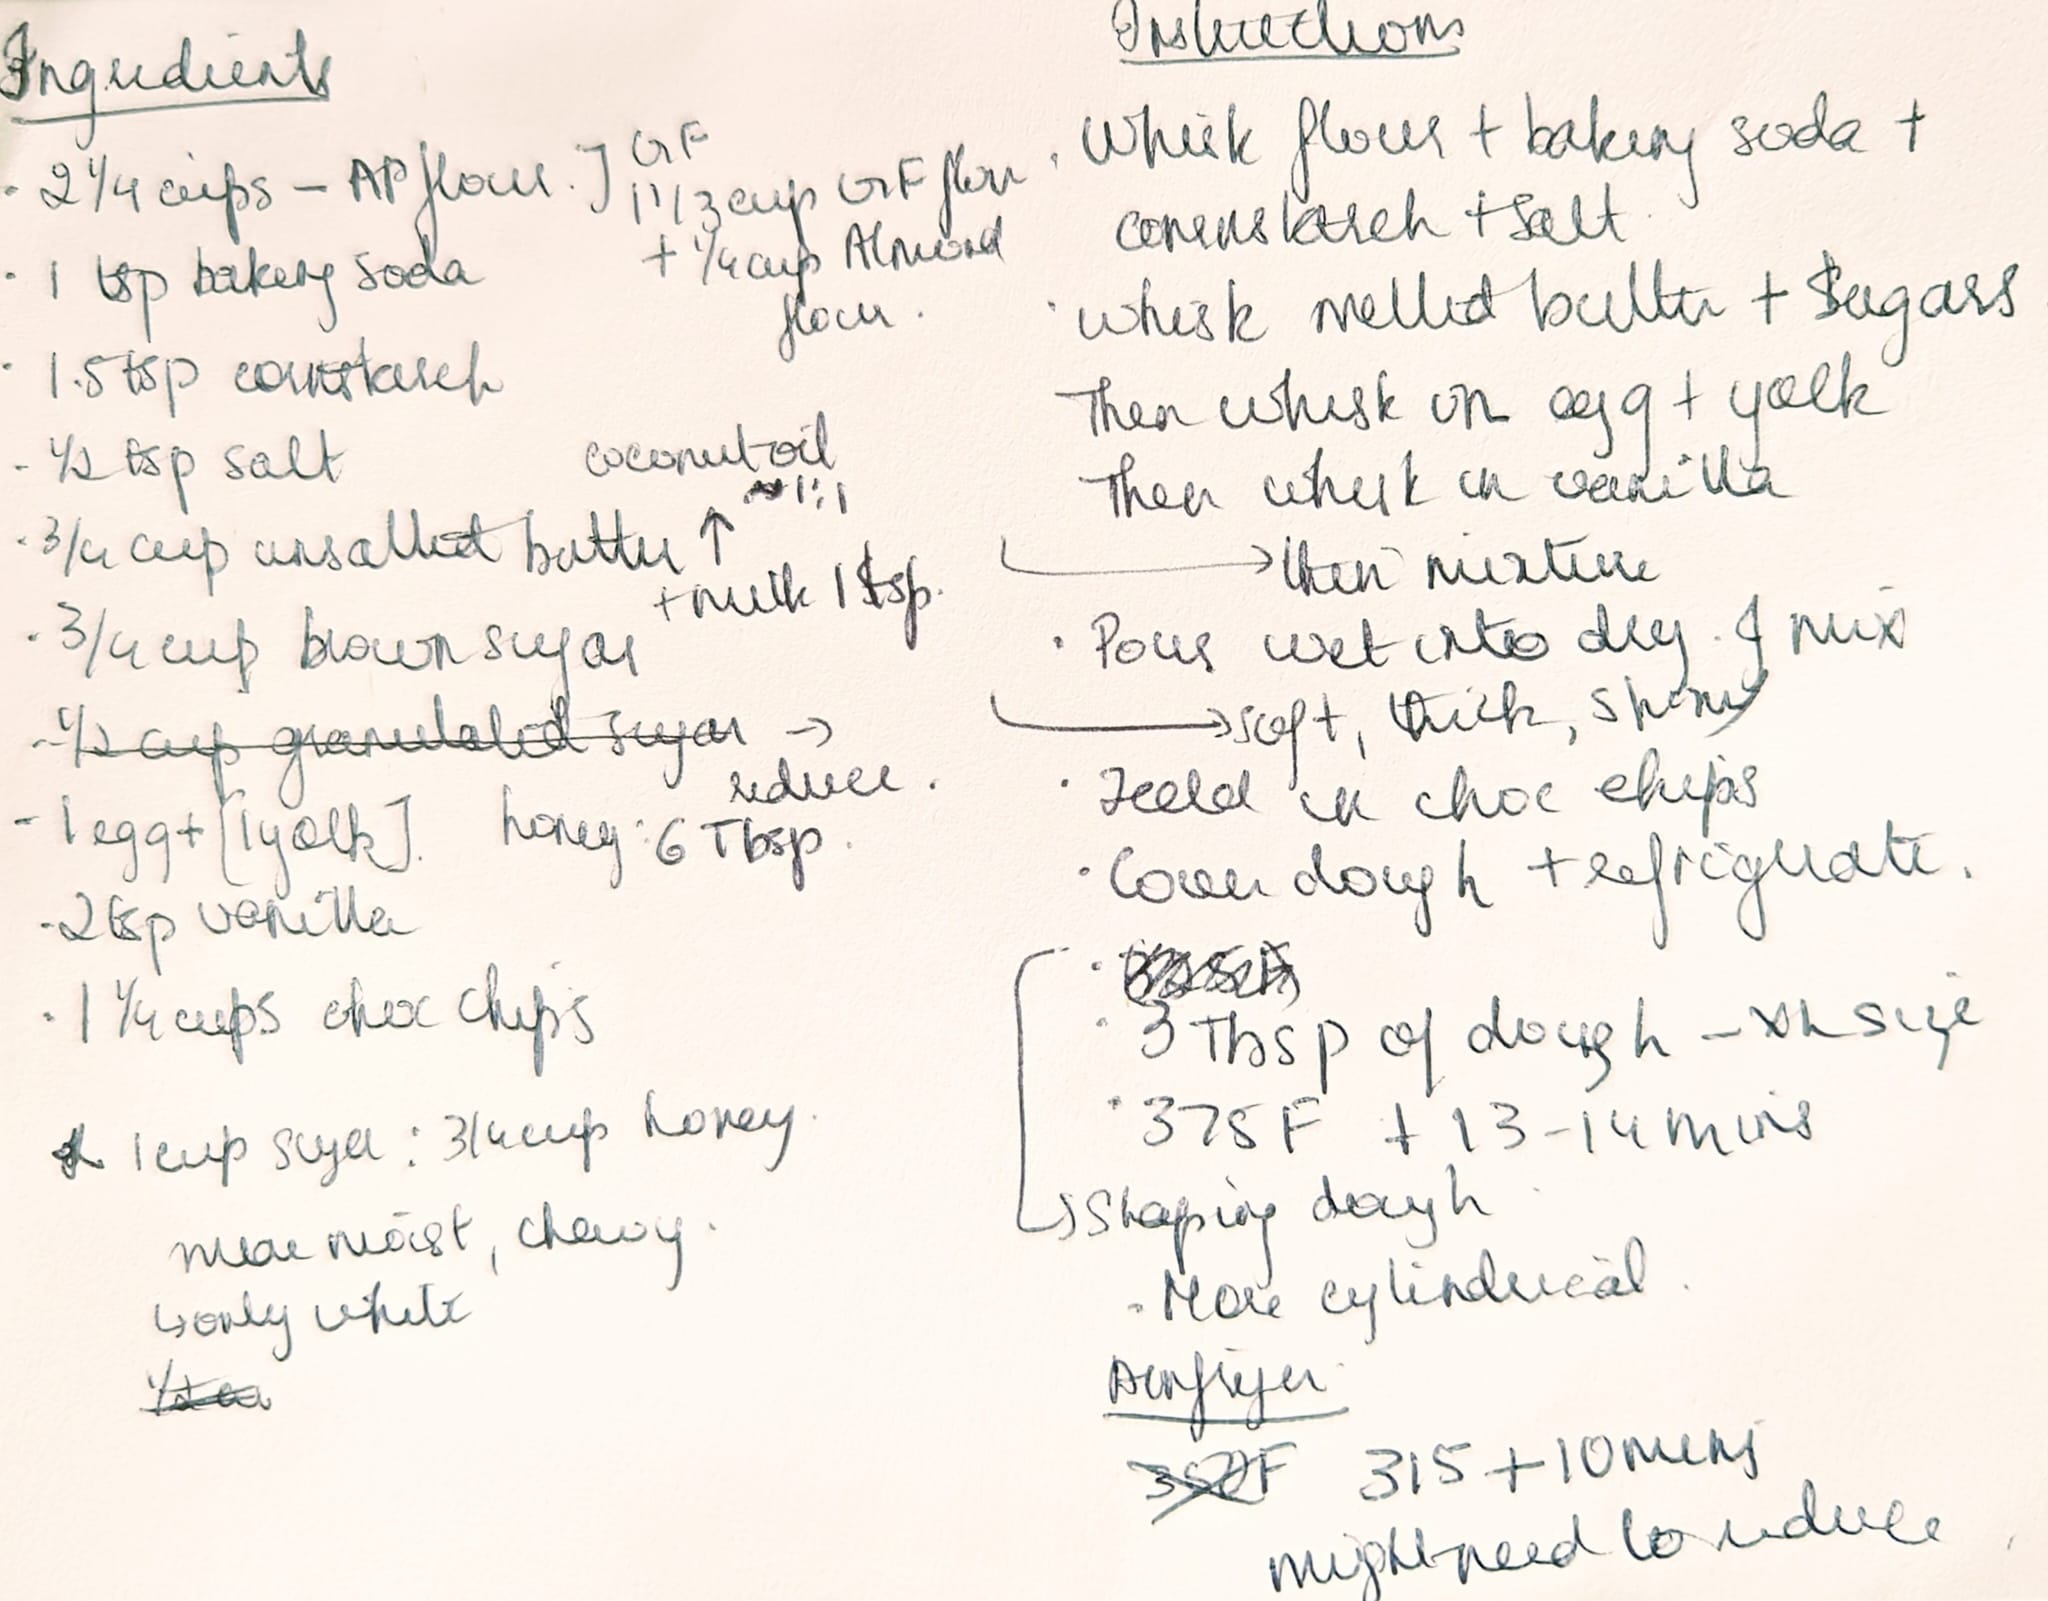 Ingredients
· 2 1/4 cups - AP flour. ] GF
1 1/3 cup GF flour
+ 1/4 cup Almond
flour.
· 1 tsp baking soda
· 1.5 tsp cornstarch
- 1/2 tsp salt
coconut oil
~1:1
· 3/4 cup unsalted butter ↑
+ milk 1 tsp.
· 3/4 cup brown sugar
- 1/2 cup granulated sugar →
reduce.
- 1 egg + [1 yolk]. honey: 6 Tbsp.
- 2 tsp vanilla
· 1 1/4 cups choc chips
* 1 cup sugar : 3/4 cup honey.
more moist, chewy.
↳ only white
Instructions
· Whisk flour + baking soda +
cornstarch + salt.
· whisk melted butter + sugars
Then whisk in egg + yolk
Then whisk in vanilla
→ then mixture
· Pour wet into dry. & mix
→ soft, thick, shiny
· Fold in choc chips
· Cover dough + refrigerate.
· 3 Tbsp of dough - size
· 375 F + 13-14 mins
→ Shaping dough
- More cylindrical.
Airfryer
350F 315 + 10 mins
might need to reduce